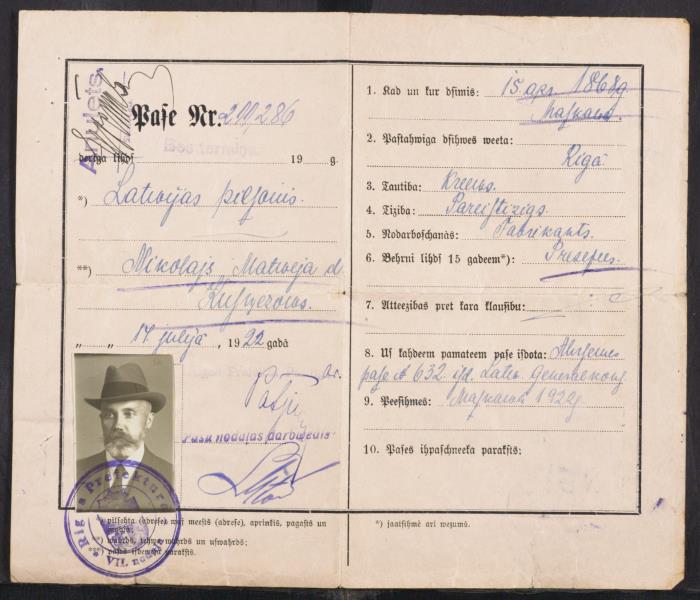 Anulets
Pase Nr. 200,286
Bes termiņa
derīga lihds 19 g.
*) Latwijas pilsonis.
**) Nikolajs Matweja d.
Kusnezows.
„ „ 14 julijā , 1922 gadā
Pasu nodaļas darbwedis
Rīgas Prefektura
VII. nodaļa
*) pilsehta (adrese) wai meests (adrese), aprinķis, pagasts un
**) wahrds, tehwa wahrds un uswahrds;
***) pases isdeweja paraksts.
1. Kad un kur dsimis: 15. apr. 1868g.
Maskawā.
2. Pastahwiga dsihwes weeta:
Rīgā
3. Tautiba: Kreews.
4. Tiziba: Pareistizigs.
5. Nodarboschanàs: Fabrikants.
6. Behrni lihds 15 gadeem*): Prezejees.
7. Atteezibas pret kara klausibu:
8. Us kahdeem pamateem pase isdota: Ahrsemes
pase № 632 isd. Latw. Generalkons.
9. Peesihmes: Maskawā 1922g.
10. Pases ihpaschneeka paraksts:
*) jaatsihmè arì wezums.